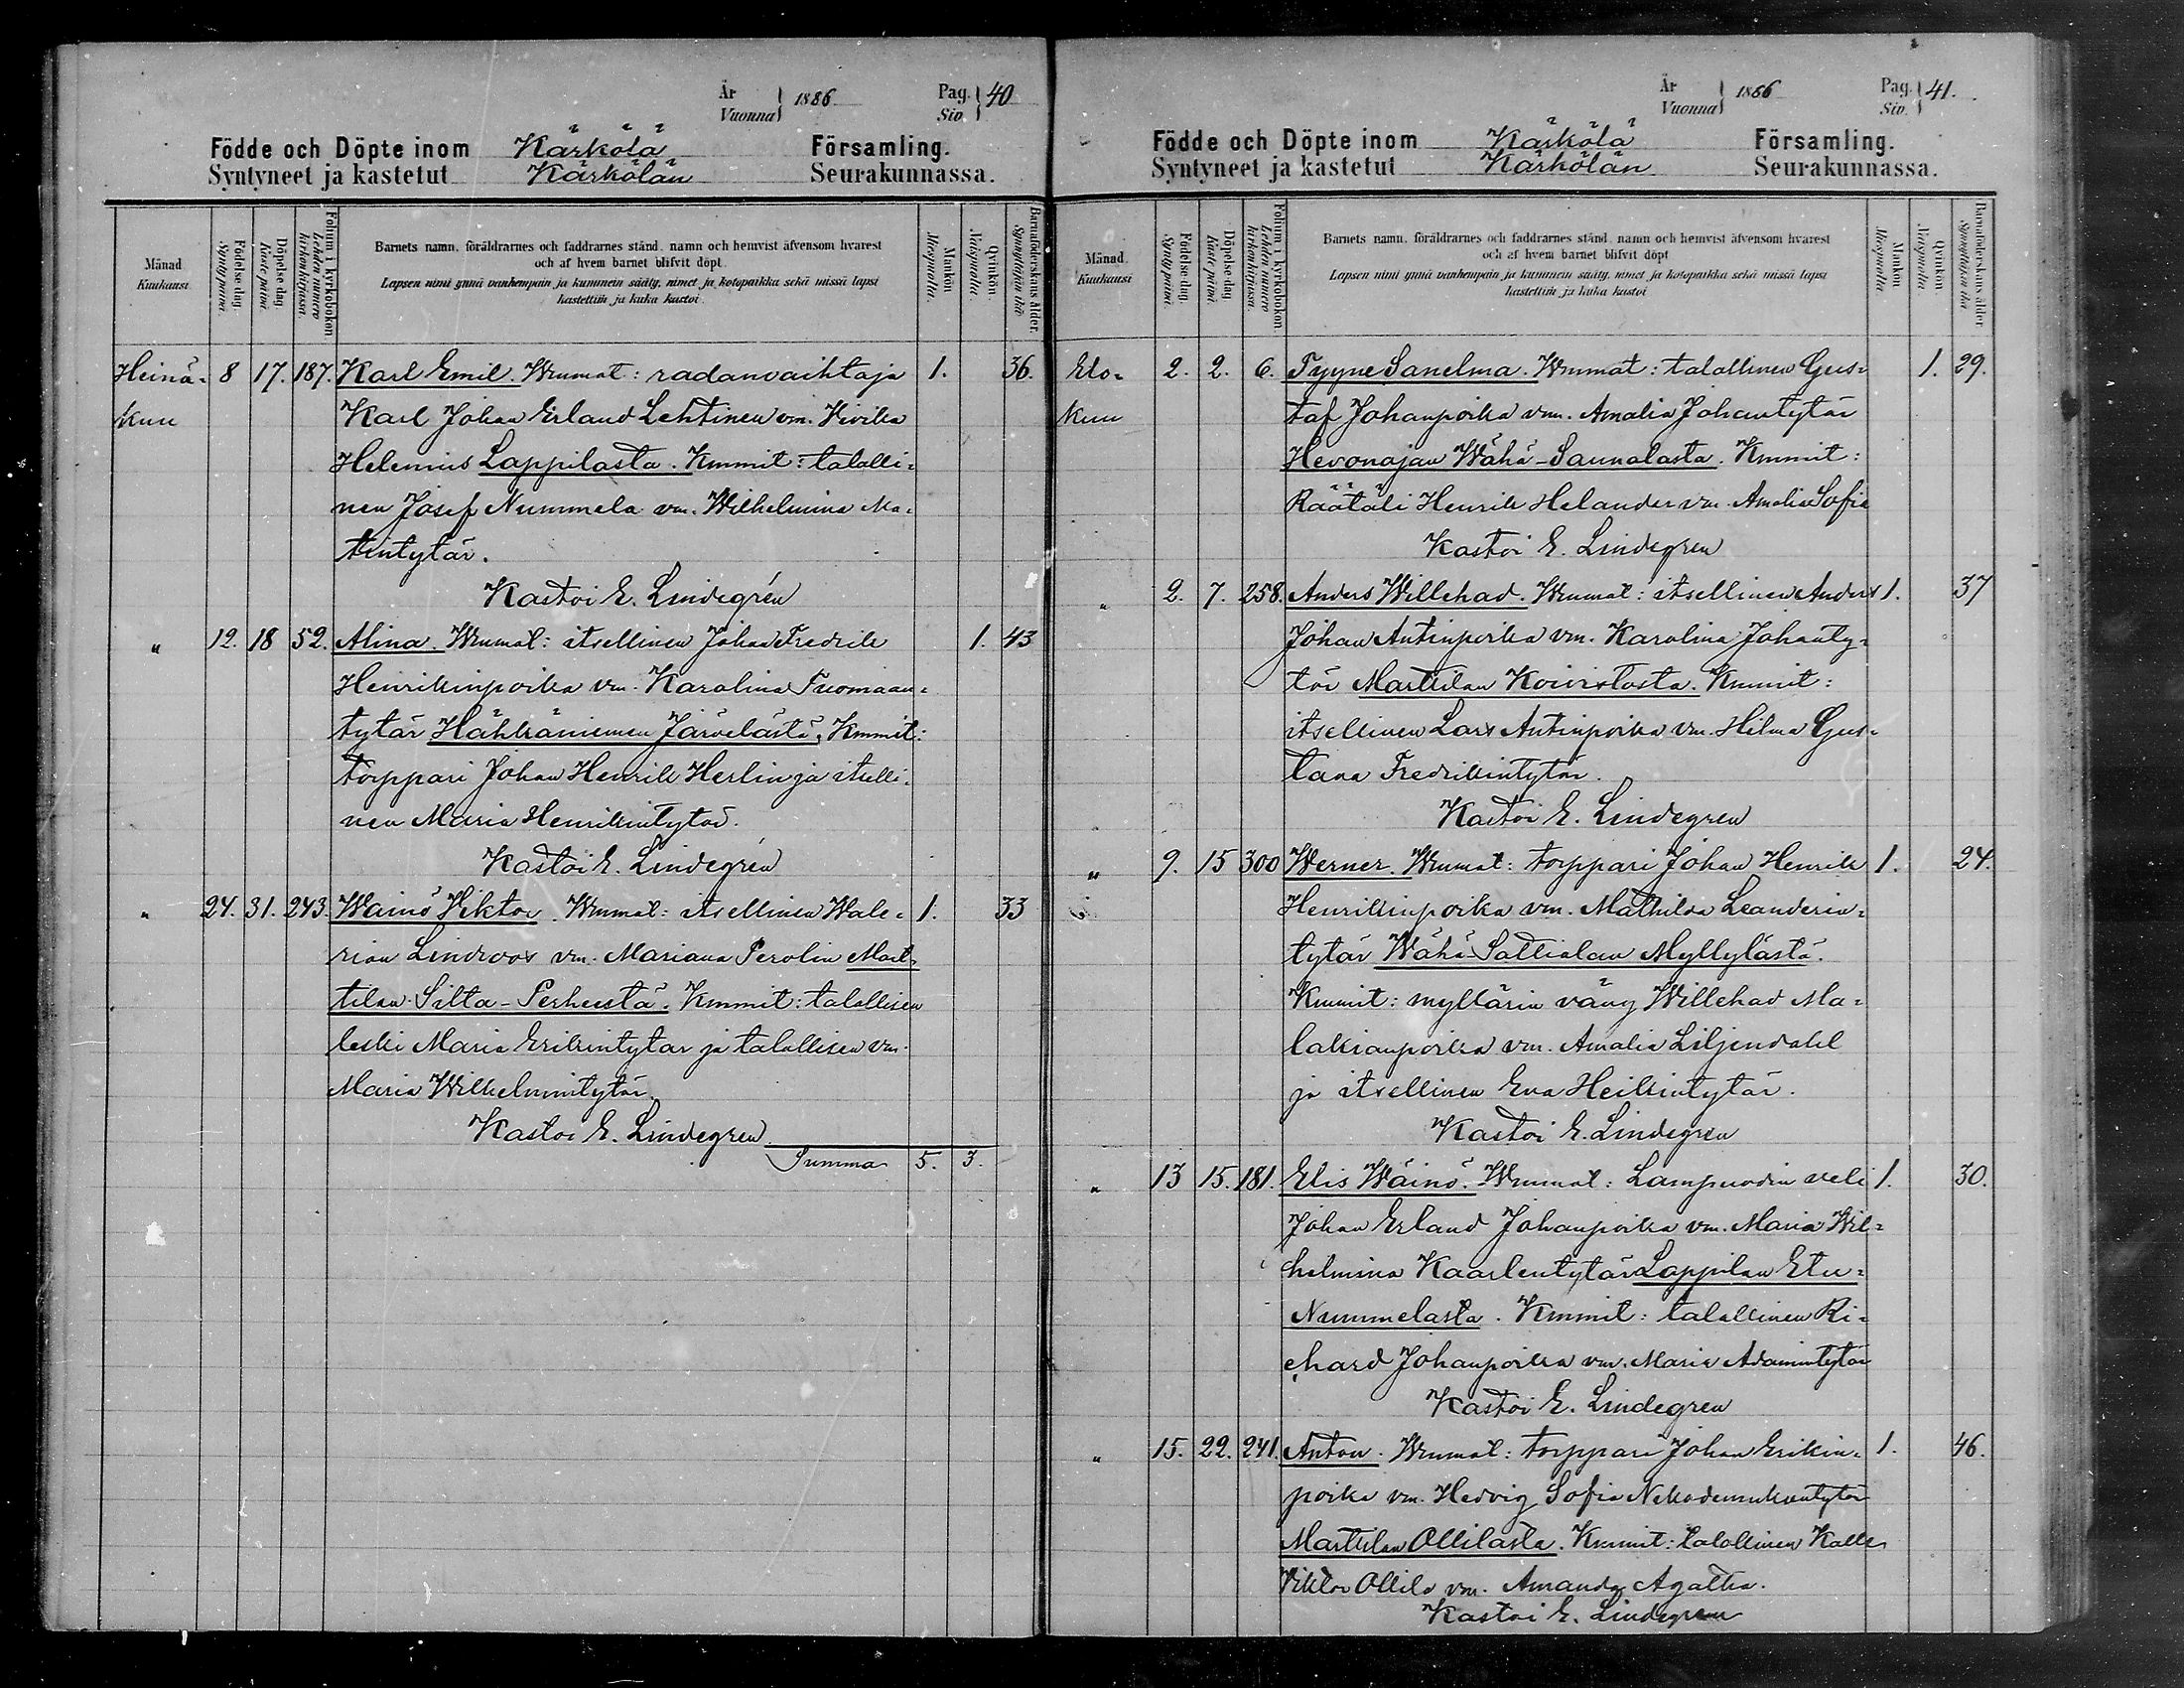 År
Vuonna
1886
Pag.
Siv.
40
Födde och Döpte inom Kärkölä Församling.
Syntyneet ja kastetut Kärkölän Seurakunnassa.
Månad
Kuukausi
Födelse dag.
Syntypäivä.
Döpelse dag.
Kaste päivä
Folium i kyrkoboken
Lehden numero
kirkonkirjassa.
Barnets namn, föräldrarnes och faddrarnes stånd, namn och hemvist äfvensom hvarest
och af hvem barnet blifvit döpt.
Lapsen nimi ynnä vanhempain ja kummein sääty, nimet ja kotopaikka sekä missä lapsi
kastettiin ja kuka kastoi.
Mankön.
Miespuolia.
Qvinkön.
Naispuolia.
Barnaföderskans ålder.
Synnyttäjän ikä
Heinä- 8 17. 187. Karl Emil. Wmmat: radanvaihtaja 1. 36.
kuu Karl Johan Erland Lehtinen vm. Fivika
Helenius Lappilasta. Kmmit: talolli-
nen Josef Nummela vm. Wilhelmina Ma-
tintytär.
Kastoi E. Lindegrén
" 12. 18 52. Alina. Wmmat: itsellinen Johan Fredrik 1. 43
Henrikinpoika vm. Karolina Tuomaan-
tytär Hähkäniemen Järvelästä, Kmmit:
torppari Johan Henrik Herlin ja itselli-
nen Maria Henrikintytär.
Kastoi E. Lindegrén
" 24. 31. 243. Wäinö Viktor. Wmmat: itsellinen Wale- 1. 33
rian Lindroos vm. Mariana Perolin Mart-
tilan Silta-Perheestä. Kmmit: talollisen
leski Maria Erikintytär ja talollisen vm.
Maria Wilhelmintytär.
Kastoi E. Lindegren
Summa 5. 3.
År
Vuonna
1886
Pag.
Siv.
41.
Födde och Döpte inom Kärkölä Församling.
Syntyneet ja kastetut Kärkölän Seurakunnassa.
Månad
Kuukausi
Födelse dag.
Synty päivä.
Döpelse dag
Kaste päivä.
Folium i kyrkoboken.
Lehden numero
kirkonkirjassa.
Barnets namn, föräldrarnes och faddrarnes stånd, namn och hemvist äfvensom hvarest
och af hvem barnet blifvit döpt
Lapsen nimi ynnä vanhempain ja kummein sääty, nimet ja kotopaikka sekä missä lapsi
kastettiin ja kuka kastoi
Mankön
Miespuolia.
Qvinkön.
Naispuolia.
Barnaföderskans ålder
Synnyttäjän ikä
Elo- 2. 2. 6. Tyyne Sanelma. Wmmat: talollinen Gus- 1. 29.
kuu taf Johanpoika vm. Amalia Johantytär
Hevonojan Wähä-Saunalasta. Kmmit:
Räätäli Henrik Helander vm. Amalia Sofia
Kastoi E. Lindegren
" 2. 7. 258. Anders Willehad. Wmmat: itsellinen Anders 1. 37
Johan Antinpoika vm. Karolina Johanty-
tär Marttilan Koivistosta. Kmmit:
itsellinen Lars Antinpoika vm. Hilma Gus-
tava Fredrikintytär.
Kastoi E. Lindegren
" 9. 15 300 Werner. Wmmat: torppari Johan Henrik 1. 24.
Henrikinpoika vm. Mathilda Leanderin-
tytär Wähä-Sattialan Myllylästä.
Kmmit: myllärin vävy Willehad Ma-
lakianpoika vm. Amalia Liljendahl
ja itsellinen Eva Heikintytär.
Kastoi E. Lindegren
" 13 15. 181. Elis Wäinö. Wmmat: Lampuodin veli 1. 30.
Johan Erland Johanpoika vm. Maria Wil-
helmina Kaarlentytär Lappilan Etu-
Nummelasta. Kmmit: talollinen Ri-
chard Johanpoika vm. Maria Adamintytär
Kastoi E. Lindegren
" 15. 22. 241. Anton. Wmmat: torppari Johan Erikin- 1. 46.
poika vm. Hedvig Sofia
Marttilan Ollilasta. Kmmit: talollinen Kalle
Viktor Ollila vm. Amanda Agatha.
Kastoi E. Lindegren